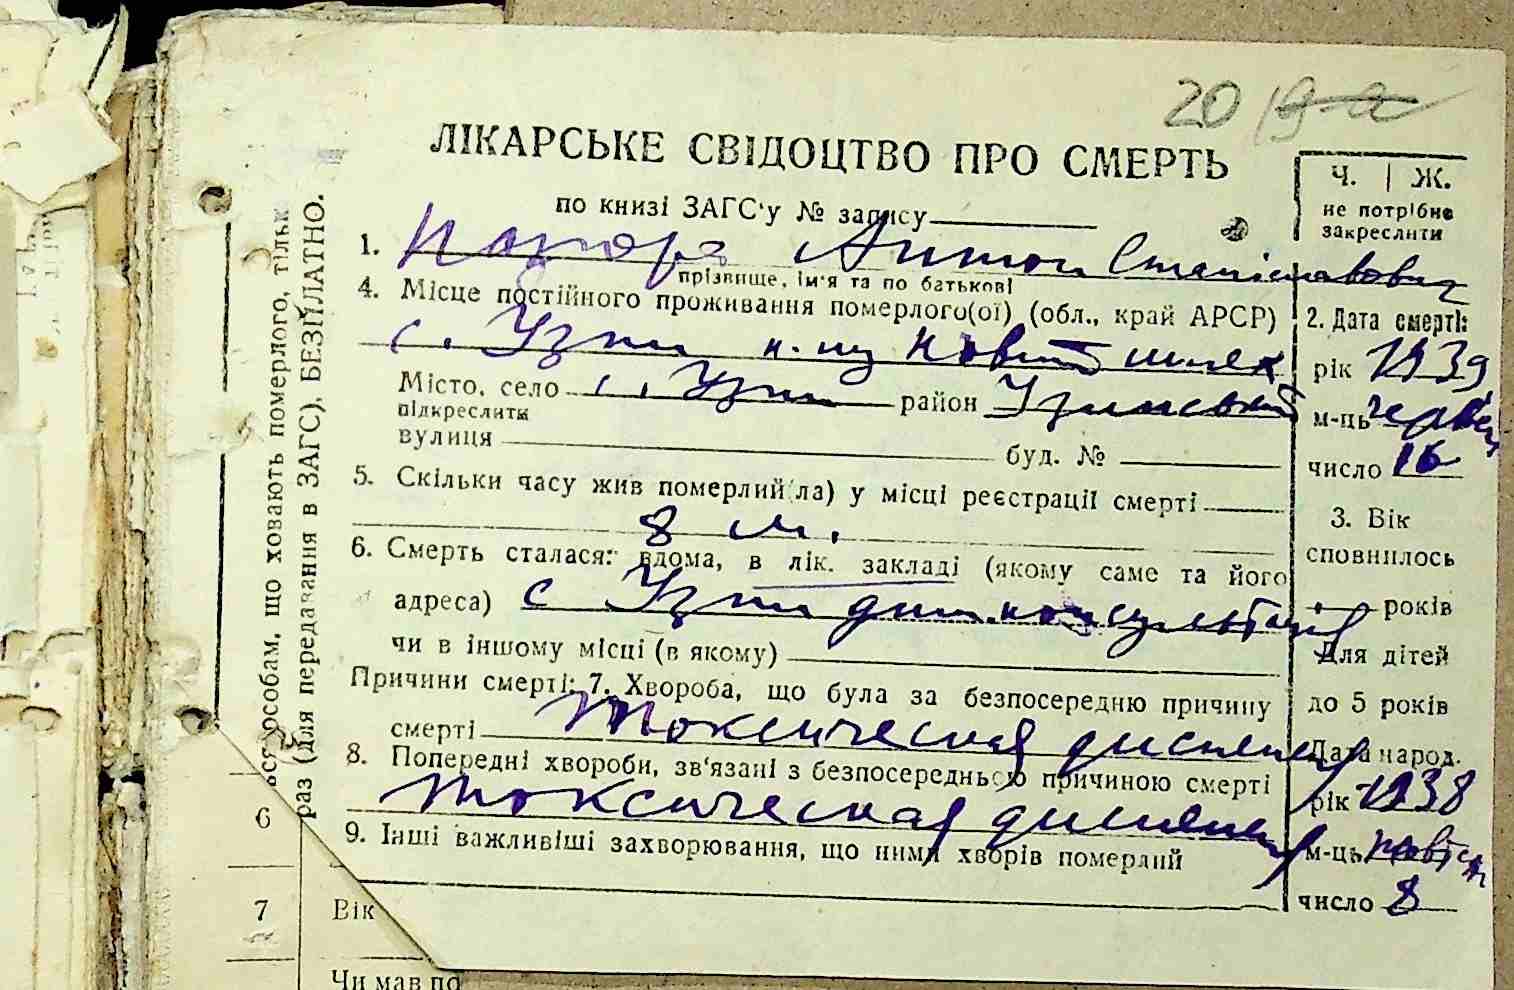 20
ЛІКАРСЬКЕ СВІДОЦТВО ПРО СМЕРТЬ
по книзі ЗАГС'у № запису
Ч. | Ж.
не потрібне
закреслити
1. Антон Станіславович
прізвище, ім'я та по батькові
4. Місце постійного проживання померлого(ої) (обл., край АРСР)
с. Узин к-п Новий шлях
Місто, село с. Узин район Узинський
підкреслити
вулиця буд. №
5. Скільки часу жив померлий(ла) у місці реєстрації смерті
8 м.
6. Смерть сталася: вдома, в лік. закладі (якому саме та його
адреса) с Узин дит. консультация
чи в іншому місці (в якому)
Причини смерті: 7. Хвороба, що була за безпосередню причину
смерті токсическая диспепсия
8. Попередні хвороби, зв'язані з безпосередньою причиною смерті
токсическая диспепсия
9. Інші важливіші захворювання, що ними хворів померлий
2. Дата смерті:
рік 1939
м-ць червень
число 16
3. Вік
сповнилось
років
Для дітей
до 5 років
Дата народ.
рік 1938
м-ць жовтень
число 8
особам, що ховають померлого, тільк
раз (для передавання в ЗАГС), БЕЗПЛАТНО.
6
7
Вік
Чи мав по